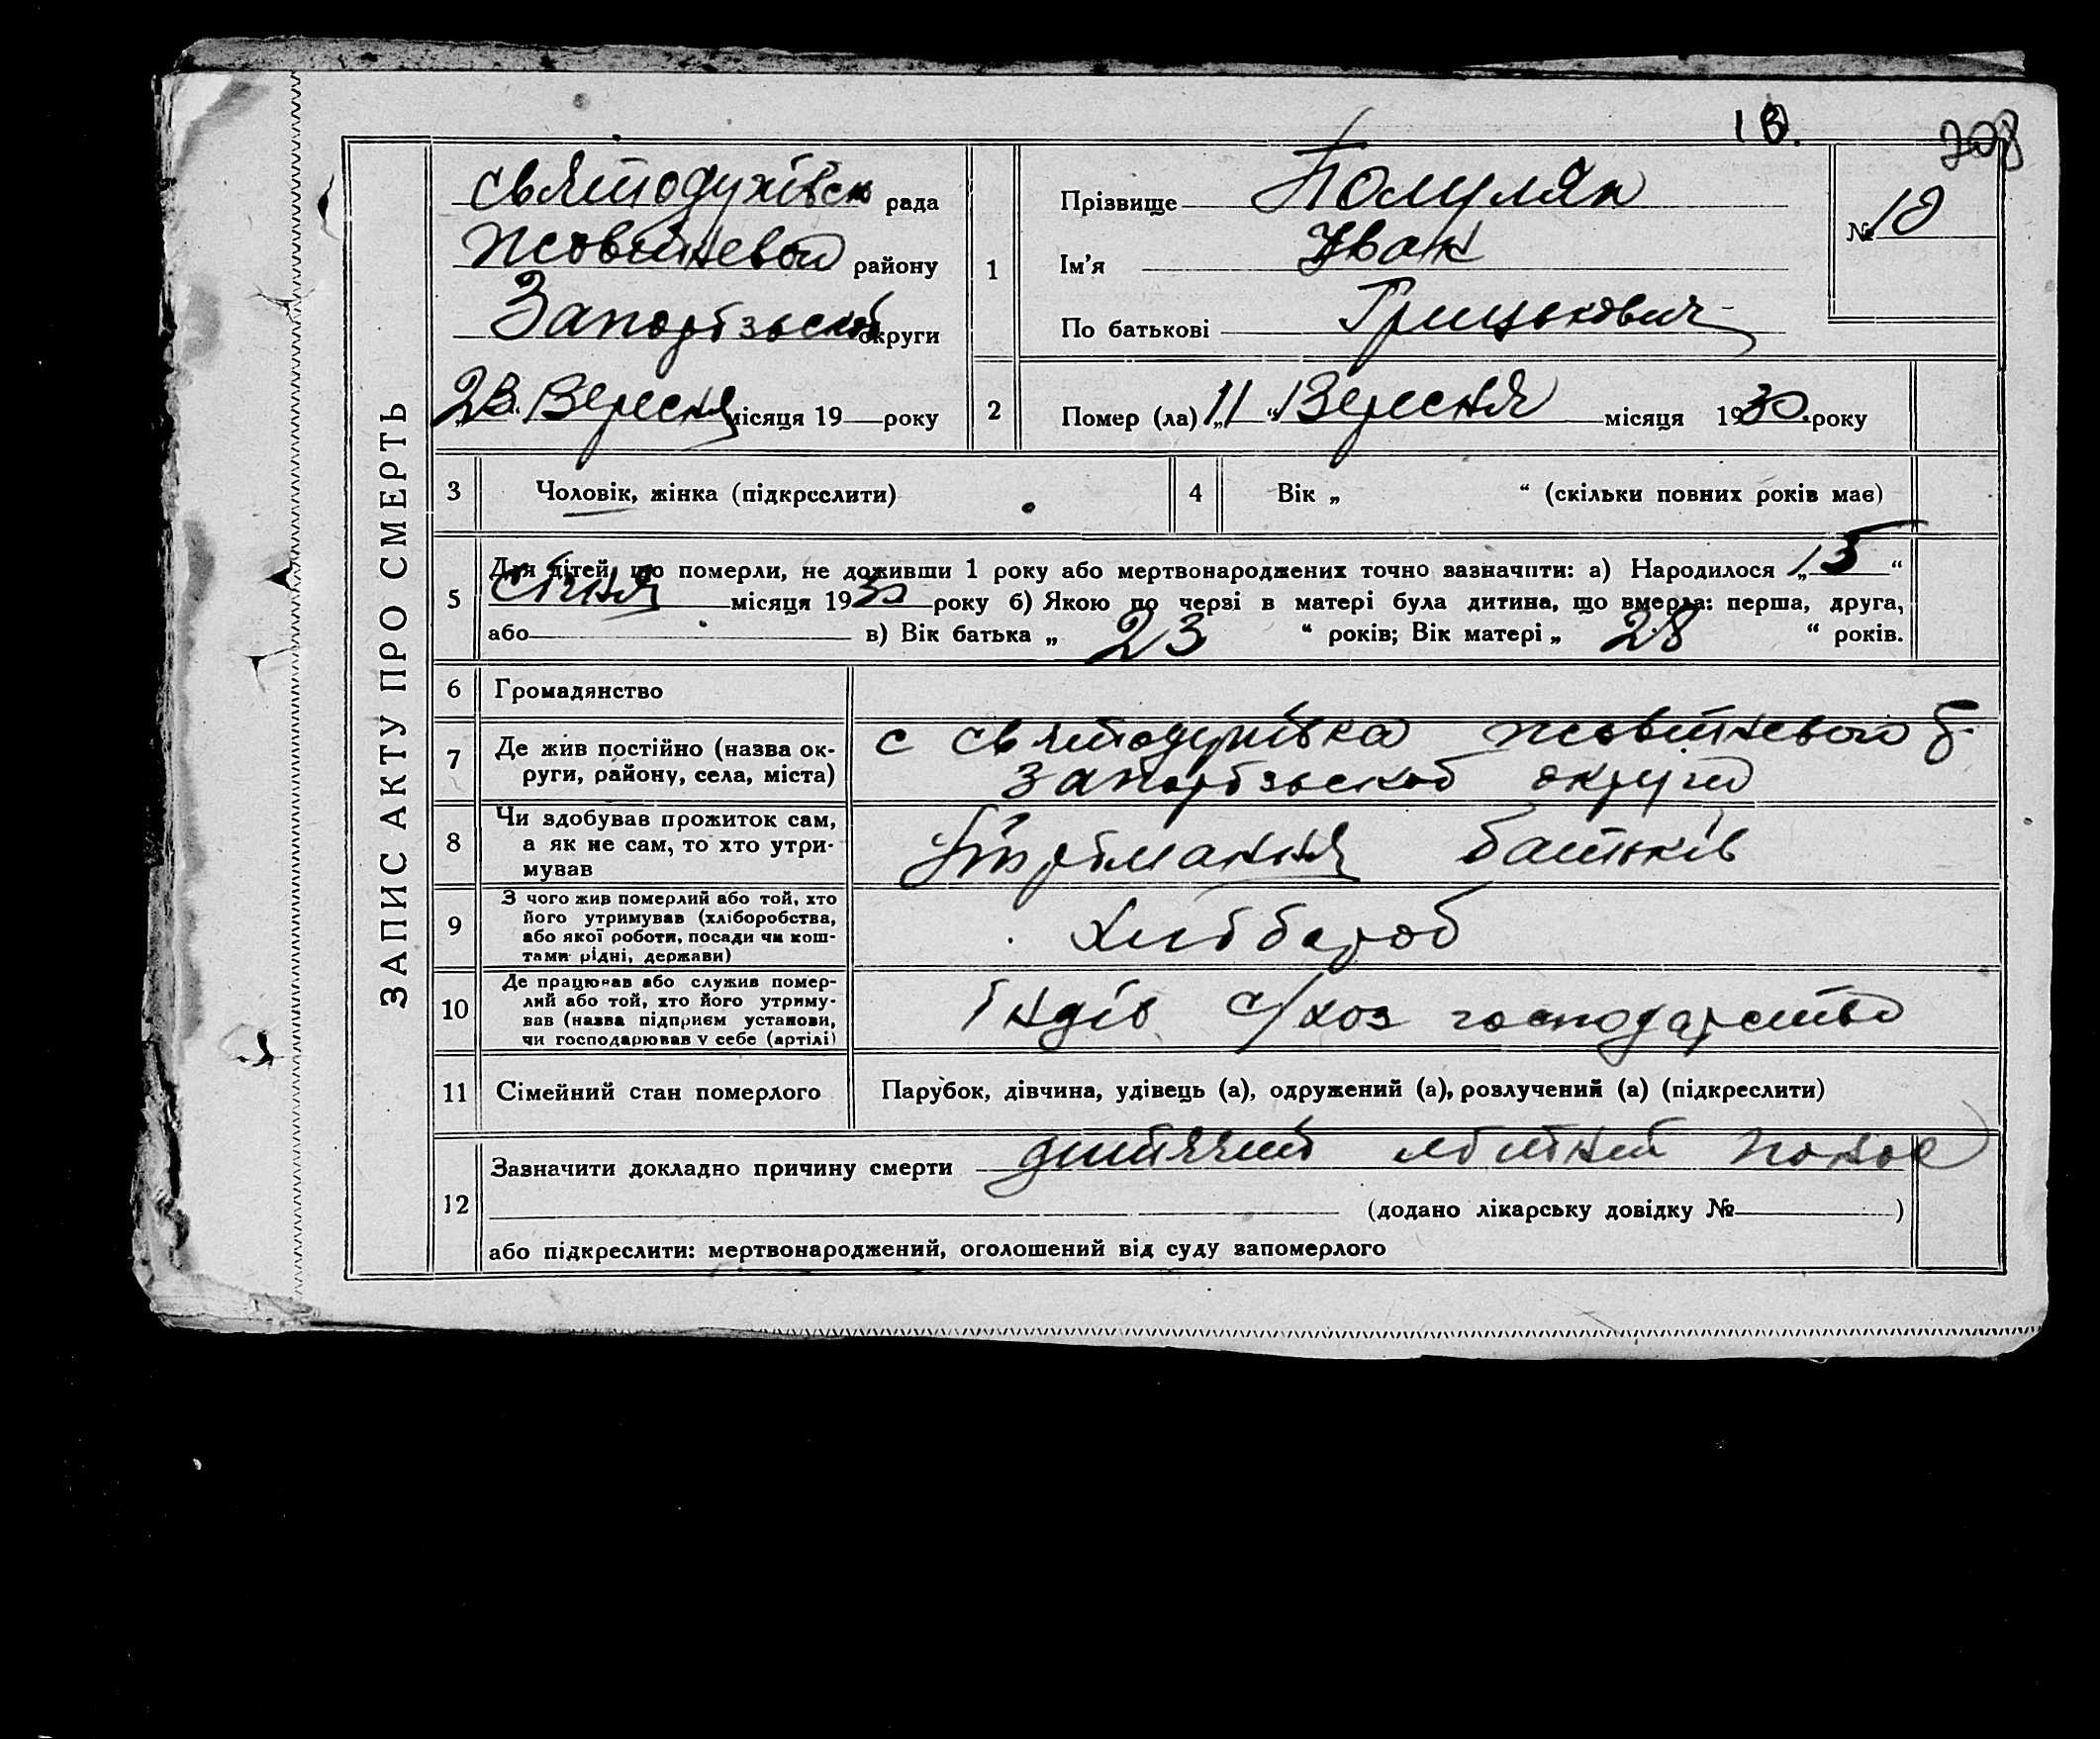 18.
208
ЗАПИС АКТУ ПРО СМЕРТЬ
святодухівск рада
жовтневой району
Запорізской округи
23 Вересня місяця 19 року
1
Прізвище Помулян
Ім'я Иван
По батькові Грицькович
№ 10
2
Помер (ла) „11“ Вересня місяця 1930 року
3 Чоловік, жінка (підкреслити)
4 Вік „ “ (скільки повних років має)
5
Для дітей, що померли, не доживши 1 року або мертвонароджених точно зазначити: а) Народилося „15“
січня місяця 1930 року б) Якою по черзі в матері була дитина, що вмерла: перша, друга,
або в) Вік батька „ 23 “ років; Вік матері „ 28 “ років.
6 Громадянство
7 Де жив постійно (назва ок-
руги, району, села, міста)
с святодухівка жовтневой р.
запорізской округи
8 Чи здобував прожиток сам,
а як не сам, то хто утри-
мував
Утрімання батьків
9 З чого жив померлий або той, хто
його утримував (хліборобства,
або якої роботи, посади чи кош-
тами рідні, держави)
хліброб
10 Де працював або служив помер-
лий або той, хто його утриму-
вав (назва підприєм установи,
чи господарював у себе (артілі)
Індів с/хоз господарство
11 Сімейний стан померлого
Парубок, дівчина, удівець (а), одружений (а), розлучений (а) (підкреслити)
12
Зазначити докладно причину смерти дитячий літний понос
(додано лікарську довідку № )
або підкреслити: мертвонароджений, оголошений від суду запомерлого